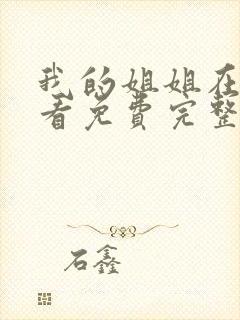 我的姐姐在
看免费完整
石鑫